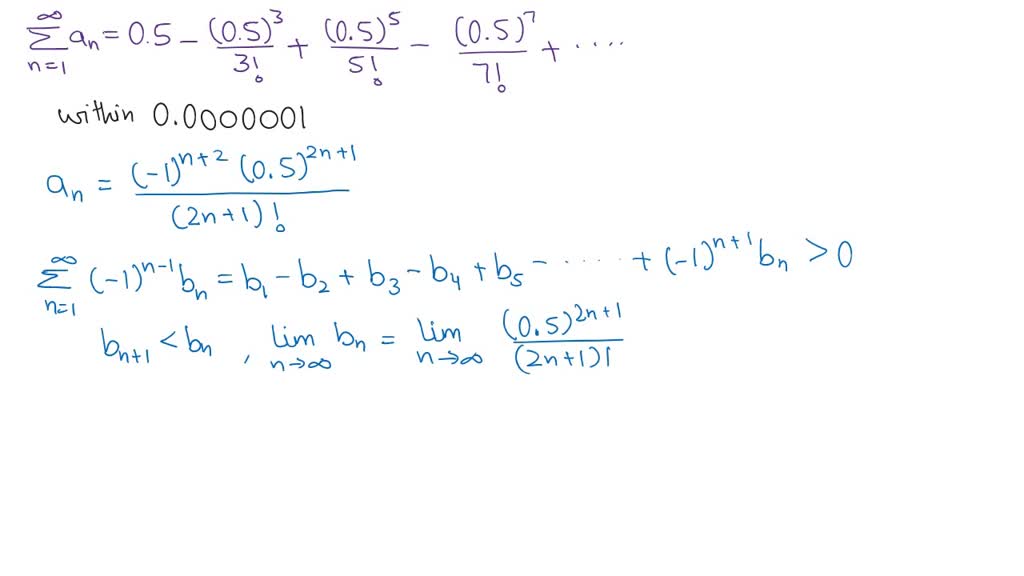 ∑_{n=1}^{∞} a_n = 0.5 − (0.5)^3/3! + (0.5)^5/5! − (0.5)^7/7! + ....
within 0.0000001
a_n = (-1)^{n+2} (0.5)^{2n+1}/(2n+1)!
∑_{n=1}^{∞} (-1)^{n-1} b_n = b_1 − b_2 + b_3 − b_4 + b_5 − ..... + (-1)^{n+1} b_n > 0
b_{n+1} < b_n , lim_{n→∞} b_n = lim_{n→∞} (0.5)^{2n+1}/(2n+1)!